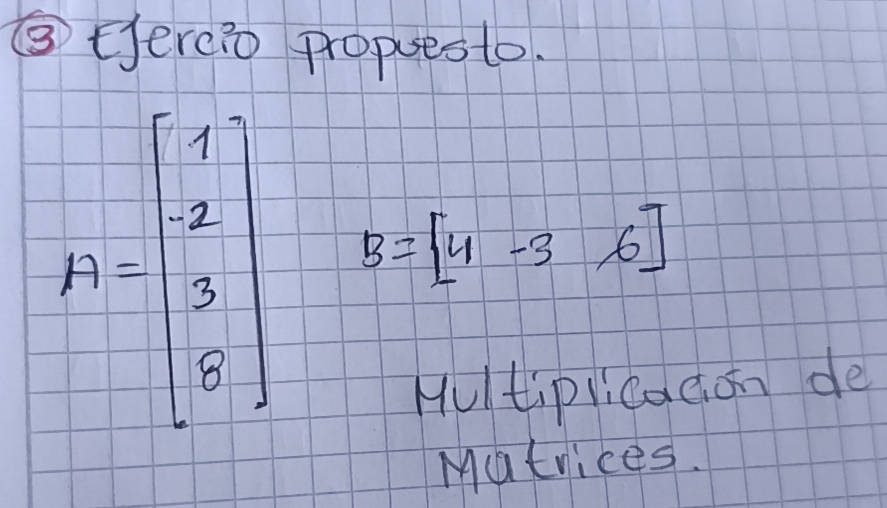 ③ Ejercio propuesto.
A = [1
-2
3
8]
B = [4 -3 6]
Multiplicación de
Matrices.